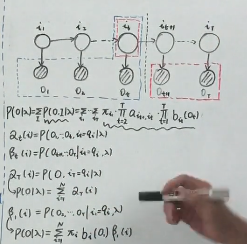 i₁ i₂ iₜ iₜ₊₁ i_T
O₁ O₂ Oₜ Oₜ₊₁ O_T
P(O|λ)=Σ_I P(O,I|λ)=Σ_{i₁}…Σ_{i_T} π_{i₁} · ∏_{t=2}^{T} a_{iₜ₋₁,iₜ} · ∏_{t=1}^{T} b_{iₜ}(Oₜ)
αₜ(i)=P(O₁,…Oₜ,iₜ=qᵢ|λ)
βₜ(i)=P(Oₜ₊₁…O_T|iₜ=qᵢ,λ)
α_T(i)=P(O,i_T=qᵢ|λ)
P(O|λ)=Σ_{i=1}^{N} α_T(i)
β₁(i)=P(O₂,…O_T|i₁=qᵢ,λ)
P(O|λ)=Σ_{i=1}^{N} πᵢ bᵢ(O₁) β₁(i)